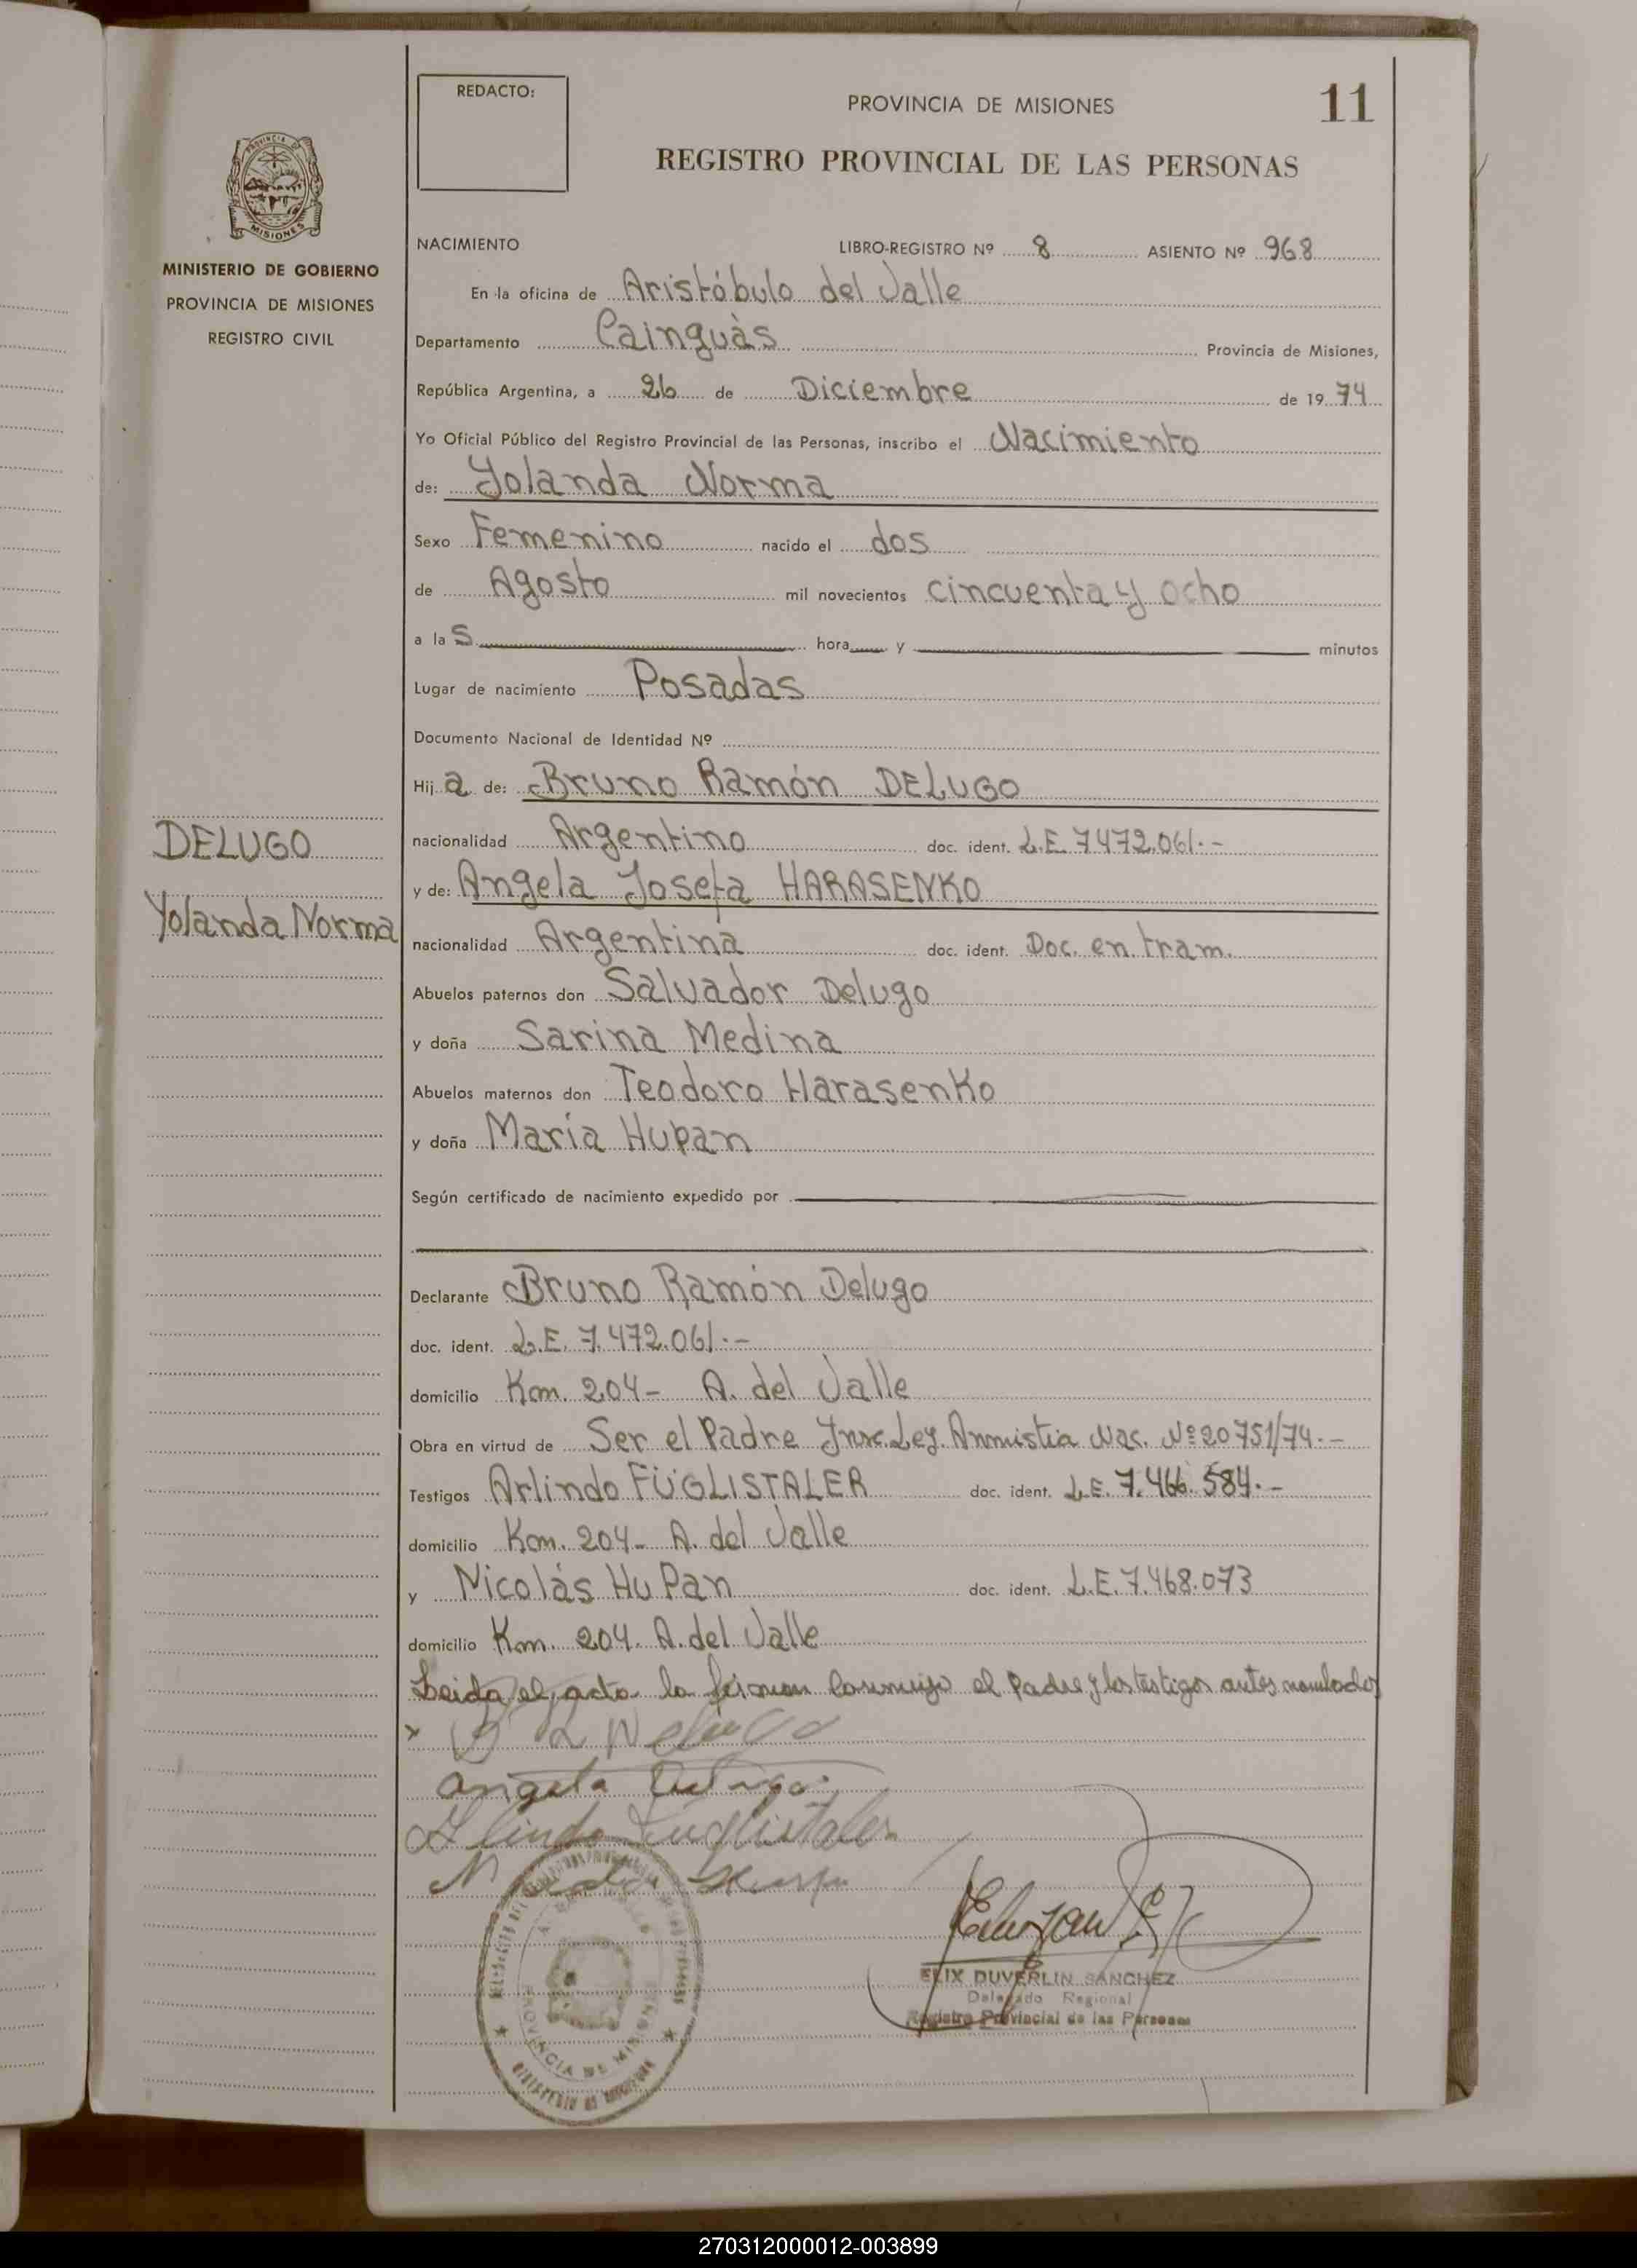 REDACTO:
PROVINCIA DE MISIONES
11
REGISTRO PROVINCIAL DE LAS PERSONAS
PROVINCIA DE
MISIONES
MINISTERIO DE GOBIERNO
PROVINCIA DE MISIONES
REGISTRO CIVIL
NACIMIENTO LIBRO-REGISTRO Nº 8 ASIENTO Nº 968
En la oficina de Aristóbulo del Valle
Departamento Cainguàs Provincia de Misiones,
República Argentina, a 26 de Diciembre de 1974
Yo Oficial Público del Registro Provincial de las Personas, inscribo el Nacimiento
de: Yolanda Norma
Sexo Femenino nacido el dos
de Agosto mil novecientos cincuenta y ocho
a las hora y minutos
Lugar de nacimiento Posadas
Documento Nacional de Identidad Nº
Hija de: Bruno Ramón DELUGO
DELUGO
Yolanda Norma
nacionalidad Argentino doc. ident. L.E. 7472.061.-
y de: Angela Josefa HARASENKO
nacionalidad Argentina doc. ident. Doc. en tram.
Abuelos paternos don Salvador Delugo
y doña Sarina Medina
Abuelos maternos don Teodoro Harasenko
y doña María Hupan
Según certificado de nacimiento expedido por
Declarante Bruno Ramón Delugo
doc. ident. L.E. 7.472.061.-
domicilio Km. 204- A. del Valle
Obra en virtud de Ser el Padre Insc. Ley. Anmistia Nac. Nº 20751/74.-
Testigos Arlindo FÜGLISTALER doc. ident. L.E. 7.466.584.-
domicilio Km. 204- A. del Valle
y Nicolás HuPan doc. ident. L.E. 7.468.073
domicilio Km. 204. A. del Valle
Leida el acta la firman conmigo el Padre y los testigos antes nombrados
Angela
Arlindo Füglistaler
PROVINCIA DE MISIONES
MINISTERIO DE GOBIERNO
ELIX DUVERLIN SANCHEZ
Delegado Regional
Registro Provincial de las Personas
270312000012-003899